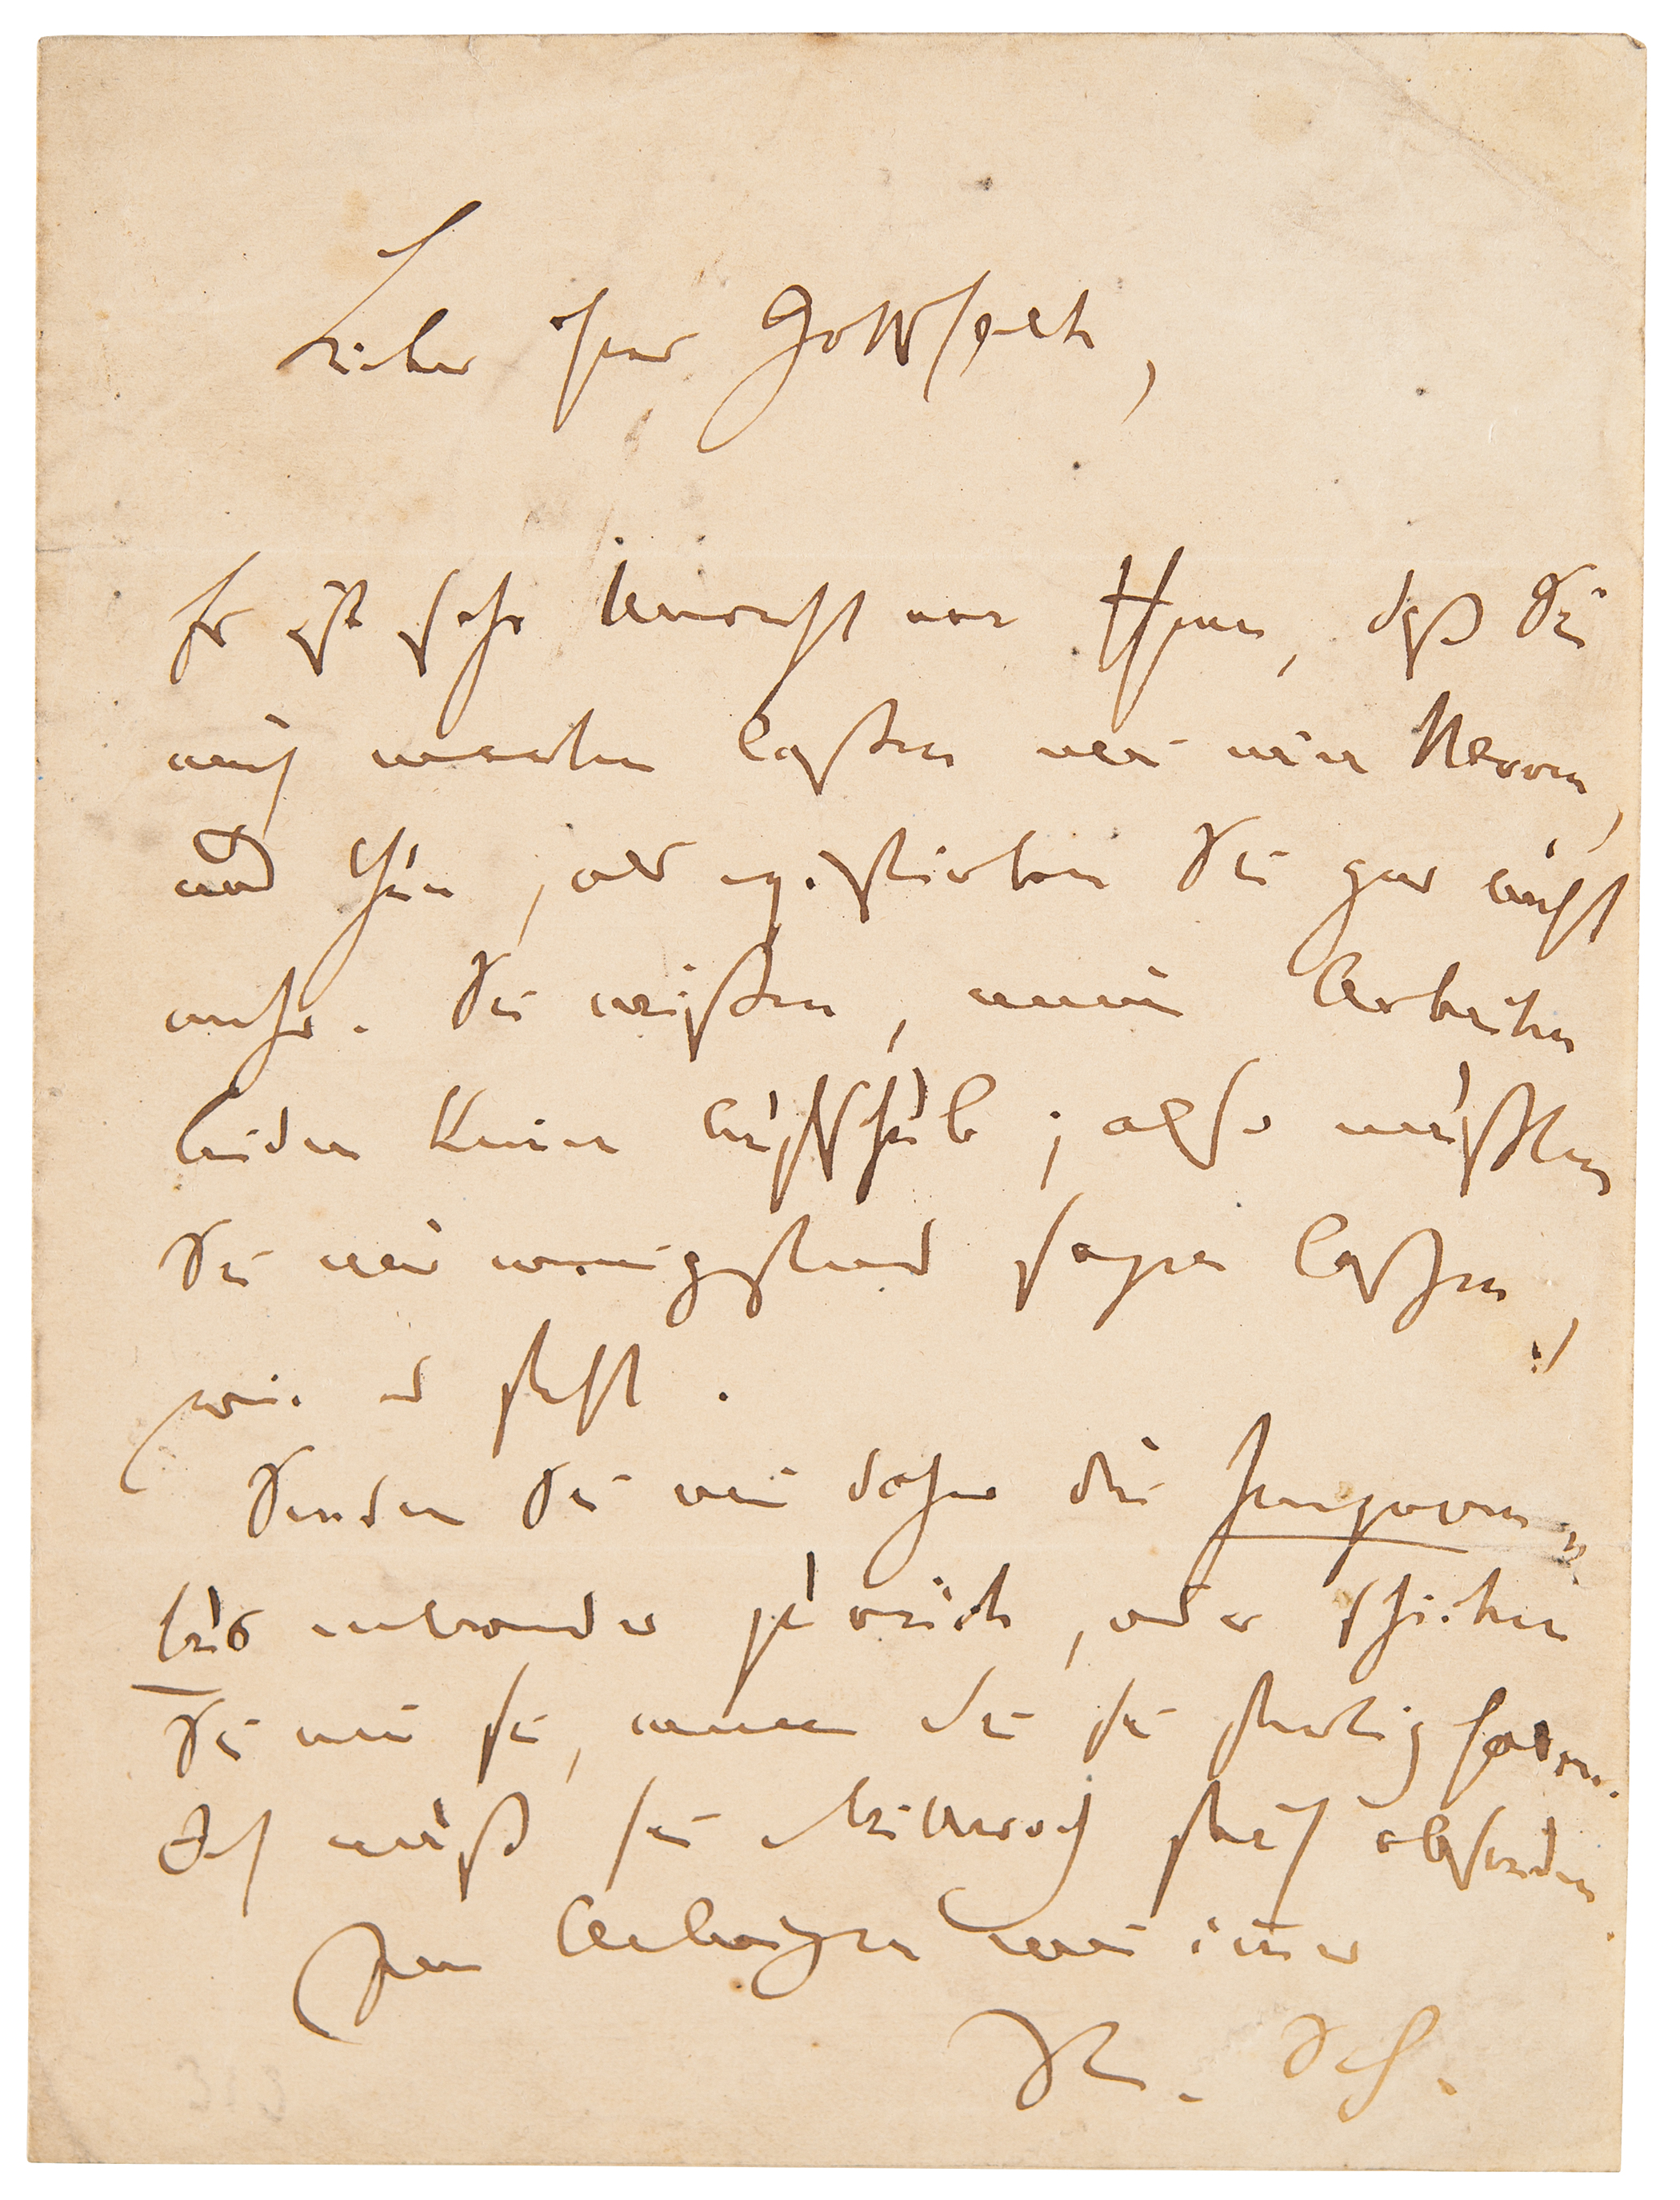 Lieber Herr Gottschalk,
Es ist sehr Unrecht von Ihnen, daß Sie
mich warten laßen wie einen Narren,
und thun, als existirten Sie gar nicht
mehr. Sie wißen, meine Arbeiten
leiden keinen Aufschub; also müßten
Sie mir wenigstens sagen laßen,
wie es steht.
Senden Sie mir daher die
entweder zurück, oder schicken
Sie mir sie, wenn Sie sie fertig haben.
Ich muß sie Mittwoch früh absenden.
Ihr wie immer
R. Sch.